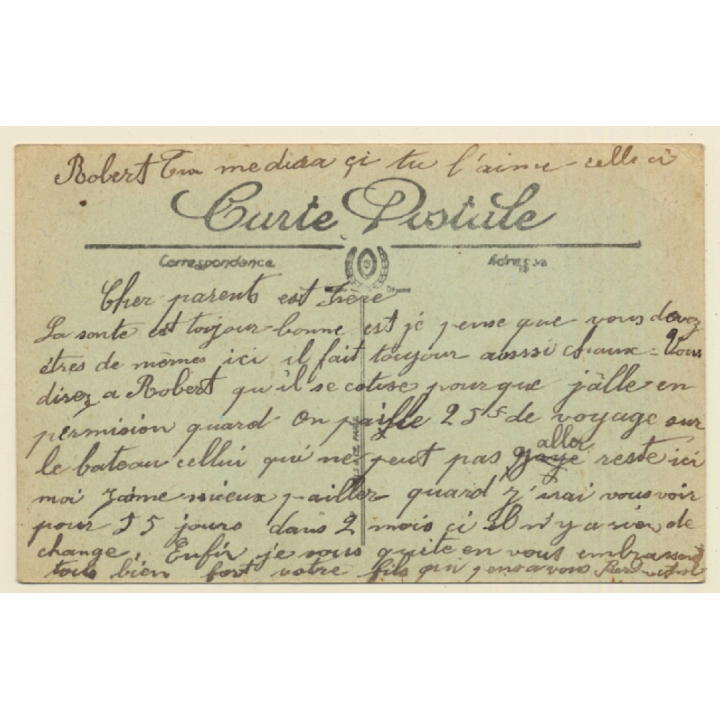 Robert Tu me dira çi tu l'aime celle ci
Carte Postale
Correspondance Adresse
Cher parents est frère
La santé est toujour bonne est je pense que vous devez
êtres de mêmes ici il fait toujour aosssi chaux = Vous
direz a Robert qu'il se cotise pour que j'âlle en
pérmision quard On paille 25 fs de voyage sur
le bateau cellui qui ne peut pas aller reste ici
moi J'aime mieux pailler quard J'irai vous voir
pour 55 jours dans 2 mois ci il n'y a rien de
change, Enfin je vous quite en vous embrassant
tous bien fort votre fils qui pens a vous